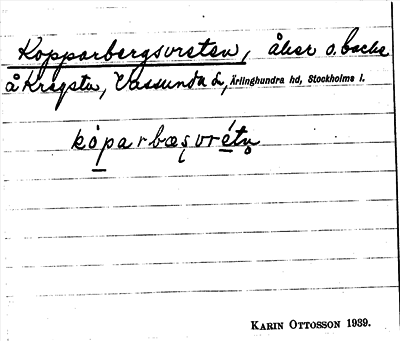 Kopparbergsvreten, åker o. backe
å Krogsta, Vassunda sn, Ärlinghundra hd, Stockholms l.
kòparbæsvrétn̥
KARIN OTTOSSON 1939.